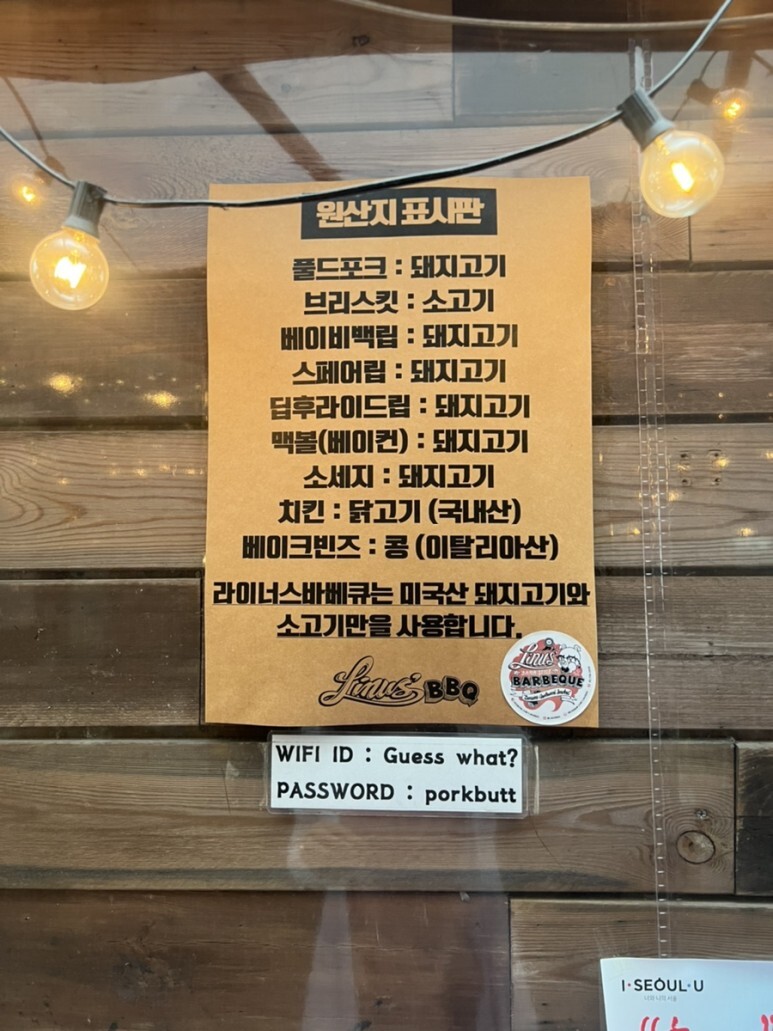 원산지 표시판
풀드포크 : 돼지고기
브리스킷 : 소고기
베이비백립 : 돼지고기
스페어립 : 돼지고기
딥후라이드립 : 돼지고기
맥볼(베이컨) : 돼지고기
소세지 : 돼지고기
치킨 : 닭고기 (국내산)
베이크빈즈 : 콩 (이탈리아산)
라이너스바베큐는 미국산 돼지고기와
소고기만을 사용합니다.
Linus' BBQ
Linus'
BARBEQUE
WIFI ID : Guess what?
PASSWORD : porkbutt
I·SEOUL·U
너와 나의 서울